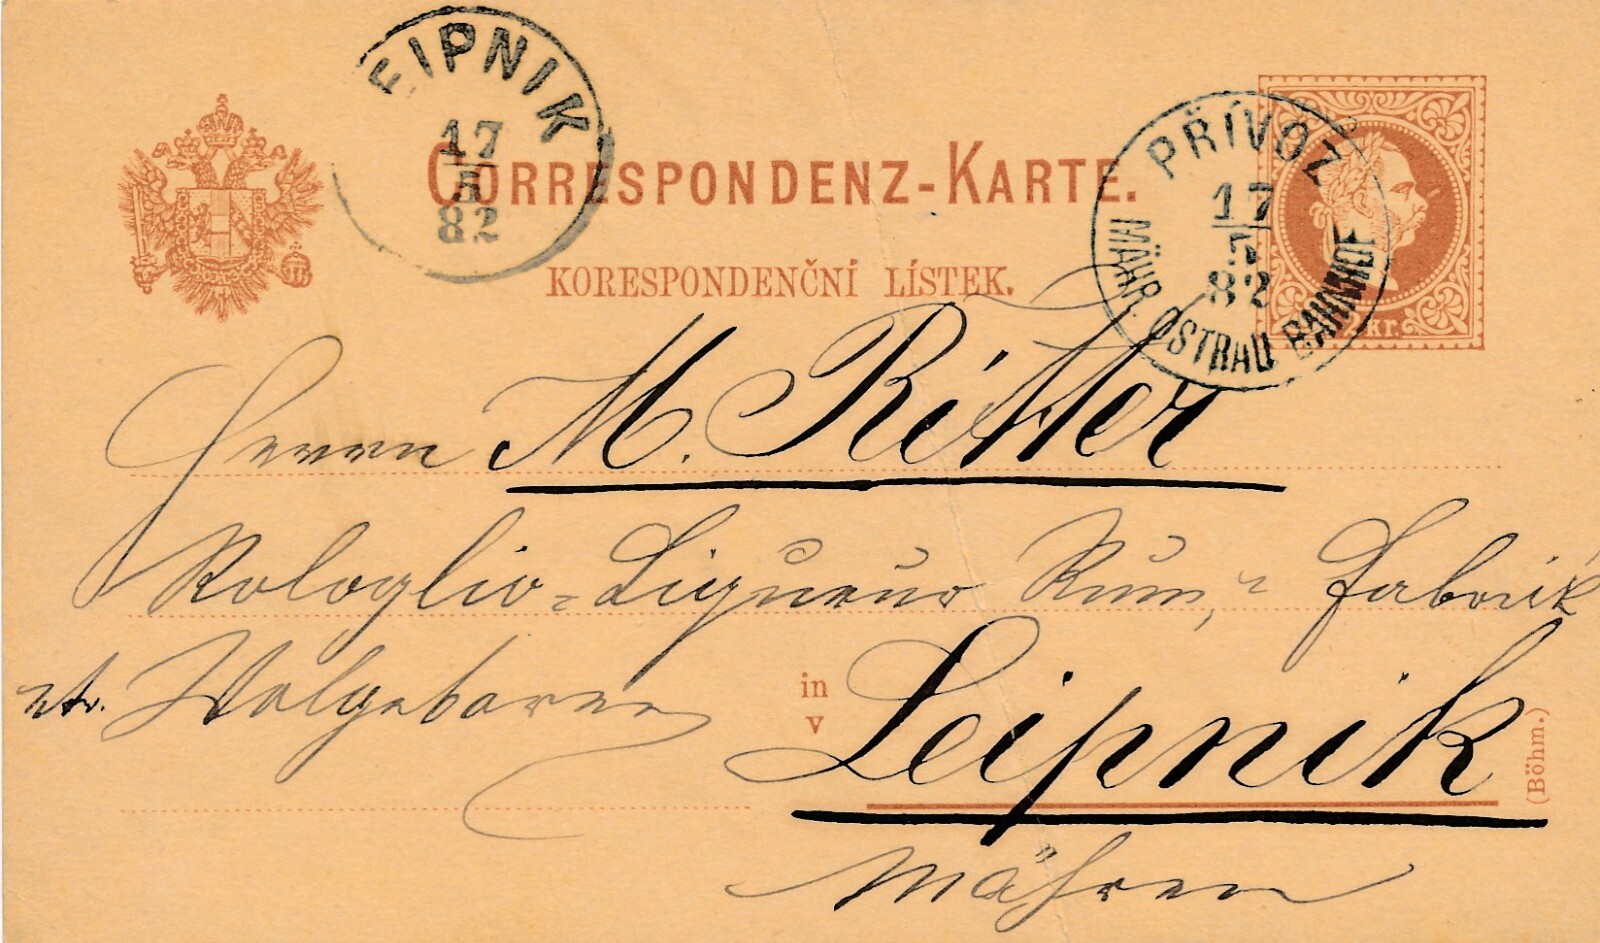 LEIPNIK
17
5
82
CORRESPONDENZ-KARTE.
KORESPONDENČNÍ LÍSTEK.
PŘÍVOZ
17
5
82
MÄHR. OSTRAU BAHNHOF
2 kr.
Herrn M. Ritter
Rosoglio-Liqueur Rum, Fabrik
etc. Wolgeboren
in
v
Leipnik
(Böhm.)
Mähren